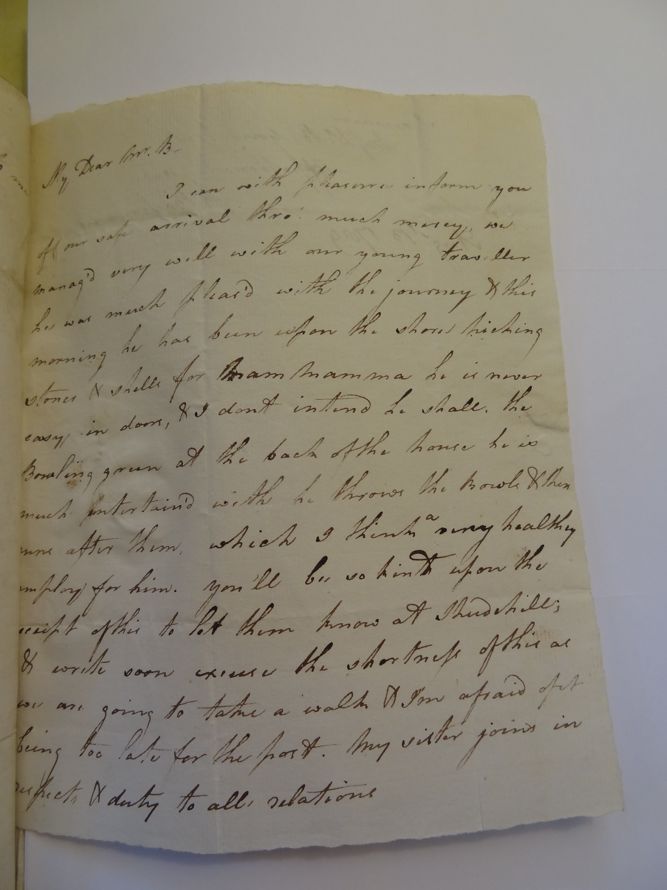 My Dear Mr. B-
I can with pleasure inform you
of our safe arrival thro' much mercy, we
manag'd very well with our young traveller
he was much pleas'd with the journey & this
morning he has been upon the shore picking
stones & shells for Mam Mamma he is never
easy in doors, & I dont intend he shall. the
Bowling green at the back of the house he is
much entertain'd with he throws the Bowls & then
runs after them, which I think a very healthy
employ for him. you'll be so kind upon the
receipt of this to let them know at Shudehill;
& write soon excuse the shortness of this as
we are going to take a walk & I'm afraid of it
being too late for the post. My sister joins in
respects & duty to all relations